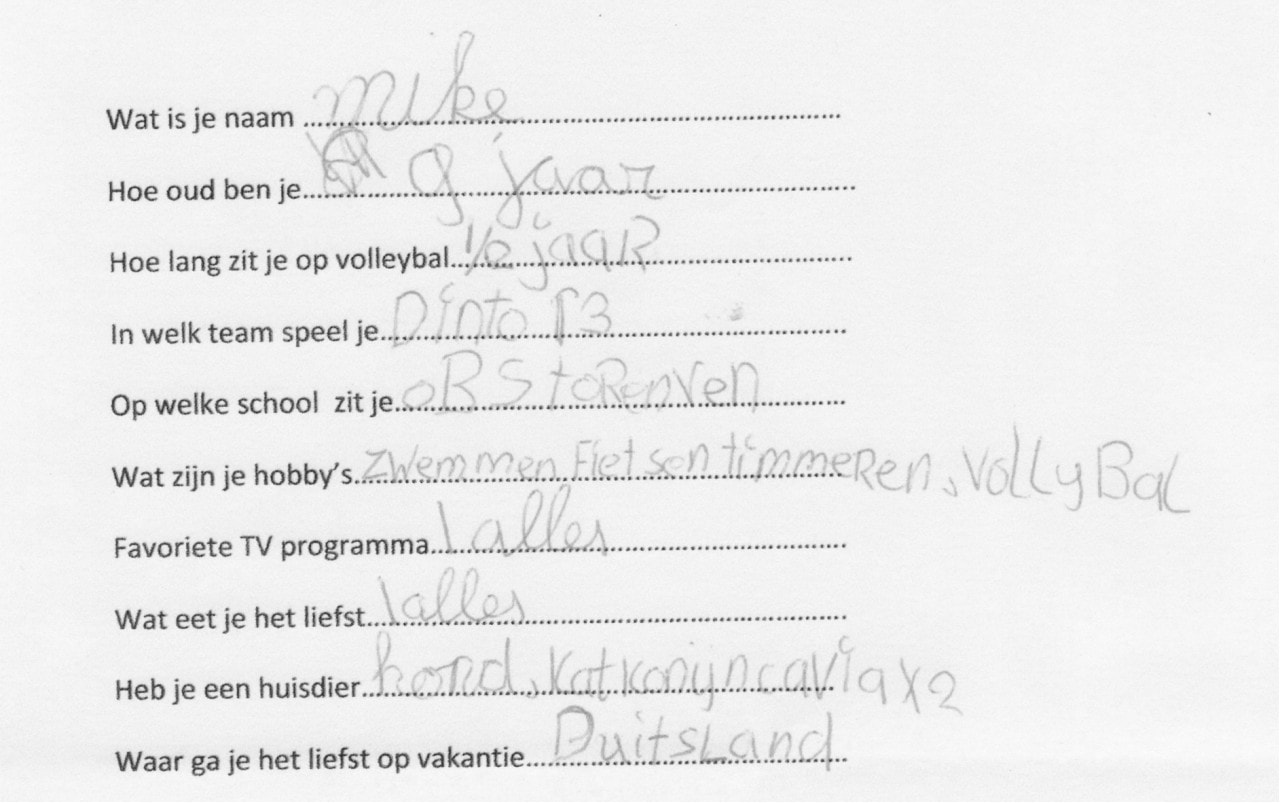 Wat is je naam mike
Hoe oud ben je 9 jaar
Hoe lang zit je op volleybal 1/2 jaar
In welk team speel je Dinto 13
Op welke school zit je OBS toRenven
Wat zijn je hobby's zwemmen, Fietsen timmeRen, VollyBal
Favoriete TV programma alles
Wat eet je het liefst alles
Heb je een huisdier hond, kat konijn cavia x2
Waar ga je het liefst op vakantie DuitsLand